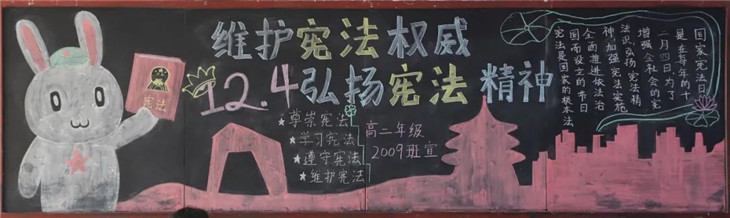 维护宪法权威
12.4弘扬宪法精神
宪法
★尊崇宪法
★学习宪法
★遵守宪法
★维护宪法
高二年级
2009班宣
国家宪法日
是在每年的十
二月四日,为了
增强全社会的宪
法识,弘扬宪法精
神,加强宪法实施
全面推进依法治
国而设立的节日
宪法是国家的根本法